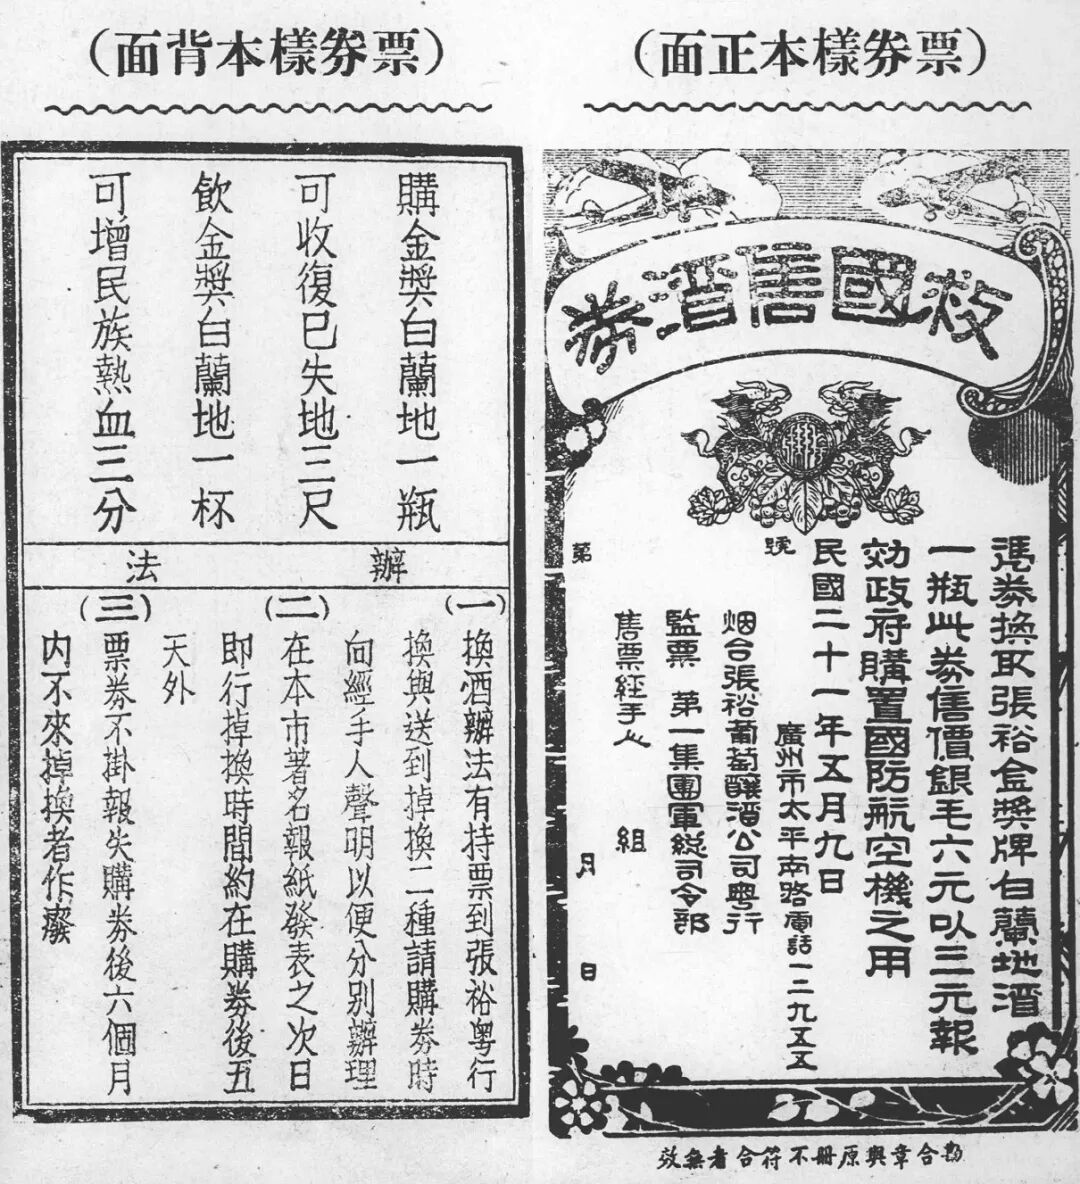 （票券樣本正面）
救國售酒券
憑券換取張裕金獎牌白蘭地酒
一瓶此券售價銀毛六元以三元報
効政府購置國防航空機之用
民國二十一年五月九日
第 號
廣州市太平南路電話一二九五五
烟台張裕葡萄釀酒公司粵行
監票 第一集團軍総司令部
售票經手人 組
月 日
勘合章與原冊不符合者無效
（票券樣本背面）
購金獎白蘭地一瓶
可收復已失地三尺
飲金獎白蘭地一杯
可增民族熱血三分
辦法
（一）
換酒辦法有持票到張裕粵行
換與送到掉換二種請購券時
向經手人聲明以便分別辦理
（二）
在本市著名報紙發表之次日
即行掉換時間約在購券後五
天外
（三）
票券不掛報失購券後六個月
内不來掉換者作廢